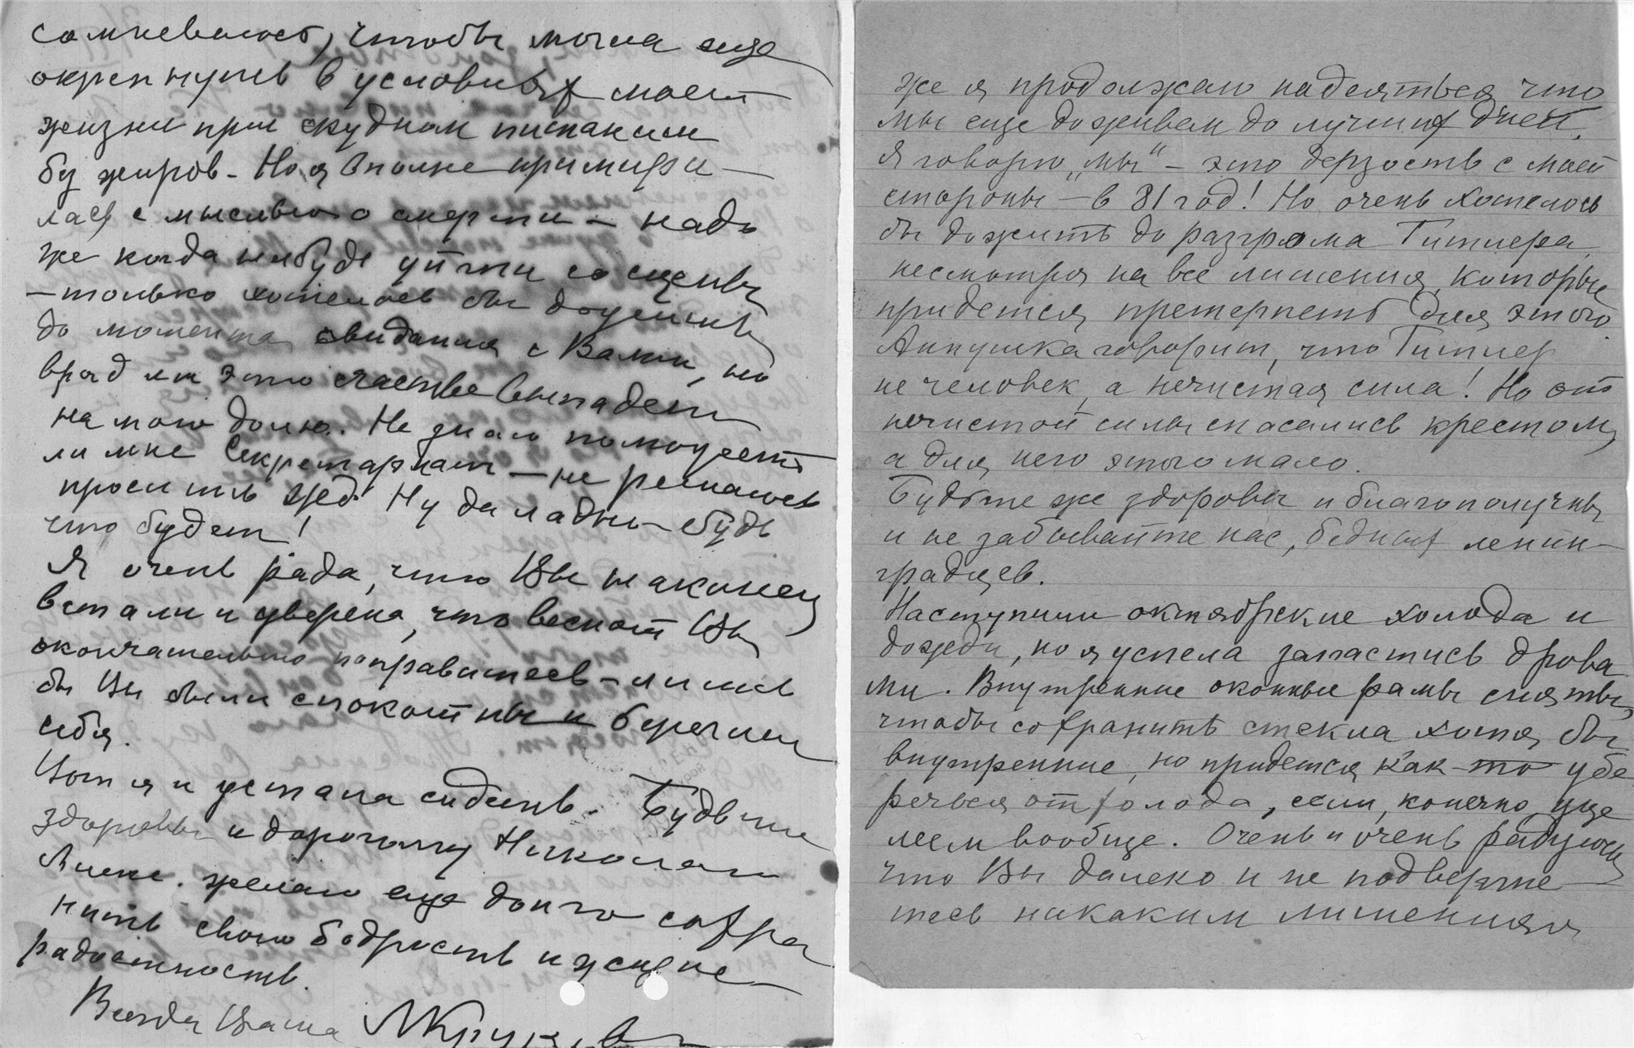 сомневаюсь, чтобы могла еще
окрепнуть в условиях моей
жизни при скудном питании
без жиров - Но я вполне примири-
лась с мыслью о смерти - надо
же когда нибудь уйти со сцены
- только хотелось бы дотянуть
до момента свидания с Вами, но
вряд ли это счастье выпадет
на мою долю. Не знаю поможет
ли мне Секретариат - не решаюсь
просить Ну да ладно - будь
что будет!
Я очень рада, что Вы наконец
встали и уверена, что весной Вы
окончательно поправитесь - лишь
бы Вы были спокойны и берегли
себя.
Вот я и устала сидеть. Будьте
здоровы и дорогому Николаю
Алекс. желаю еще долго сохра
нить свою бодрость и жизне-
радостность.
Всегда Ваша
же я продолжаю надеяться что
мы еще доживем до лучших дней.
Я говорю „мы" - это дерзость с моей
стороны - в 81 год! Но очень хотелось
бы дожить до разгрома Гитлера,
несмотря на все лишения, которые
придется претерпеть для этого
Аннушка говорит, что Гитлер
не человек, а нечистая сила! Но от
нечистой силы спасались крестом,
а для него этого мало.
Будьте же здоровы и благополучны
и не забывайте нас, бедных ленин-
градцев.
Наступили октябрские холода и
дожди, но я успела запастись дрова
ми. Внутренние оконные рамы сняты,
чтобы сохранить стекла хотя бы
внутренние, но придется как-то убе
речься от холода, если, конечно, уце
леем вообще. Очень и очень радуюсь
что Вы далеко и не подвергне-
тесь никаким лишениям